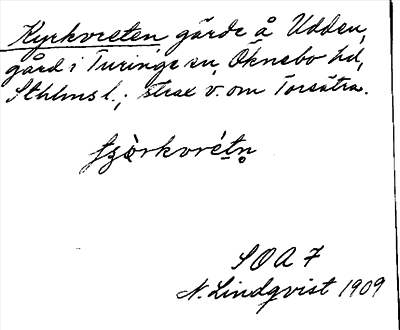 Kyrkvreten gärde å Udden,
gård i Turinge sn, Öknebo hd,
Sthlms l.; strax v. om Torsätra.
tjo̊rkvrétn̥
SOA 7
N. Lindqvist 1909